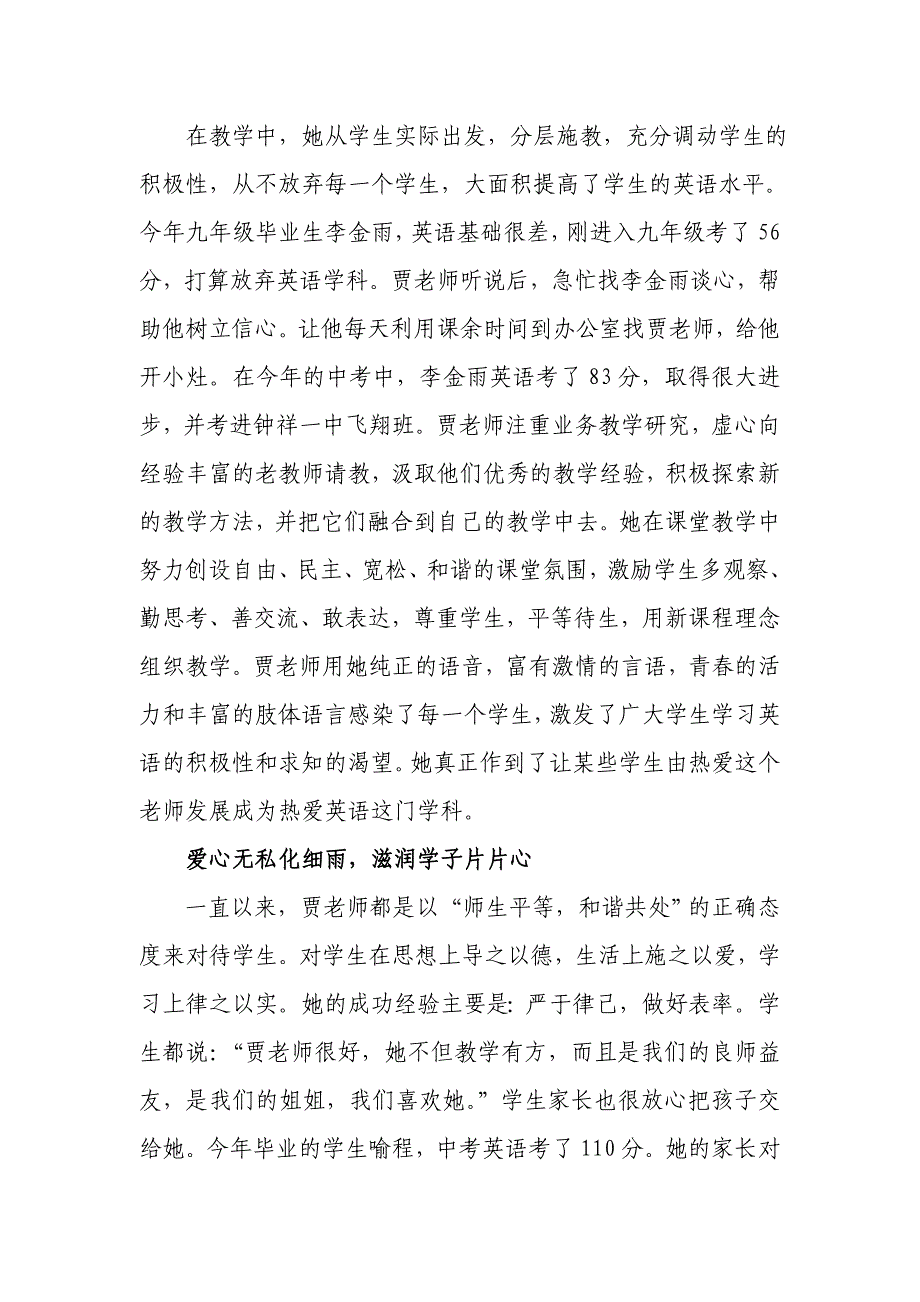 在教学中，她从学生实际出发，分层施教，充分调动学生的
积极性，从不放弃每一个学生，大面积提高了学生的英语水平。
今年九年级毕业生李金雨，英语基础很差，刚进入九年级考了 56
分，打算放弃英语学科。贾老师听说后，急忙找李金雨谈心，帮
助他树立信心。让他每天利用课余时间到办公室找贾老师，给他
开小灶。在今年的中考中，李金雨英语考了 83 分，取得很大进
步，并考进钟祥一中飞翔班。贾老师注重业务教学研究，虚心向
经验丰富的老教师请教，汲取他们优秀的教学经验，积极探索新
的教学方法，并把它们融合到自己的教学中去。她在课堂教学中
努力创设自由、民主、宽松、和谐的课堂氛围，激励学生多观察、
勤思考、善交流、敢表达，尊重学生，平等待生，用新课程理念
组织教学。贾老师用她纯正的语音，富有激情的言语，青春的活
力和丰富的肢体语言感染了每一个学生，激发了广大学生学习英
语的积极性和求知的渴望。她真正作到了让某些学生由热爱这个
老师发展成为热爱英语这门学科。
爱心无私化细雨，滋润学子片片心
一直以来，贾老师都是以“师生平等，和谐共处”的正确态
度来对待学生。对学生在思想上导之以德，生活上施之以爱，学
习上律之以实。她的成功经验主要是：严于律己，做好表率。学
生都说：“贾老师很好，她不但教学有方，而且是我们的良师益
友，是我们的姐姐，我们喜欢她。”学生家长也很放心把孩子交
给她。今年毕业的学生喻程，中考英语考了 110 分。她的家长对